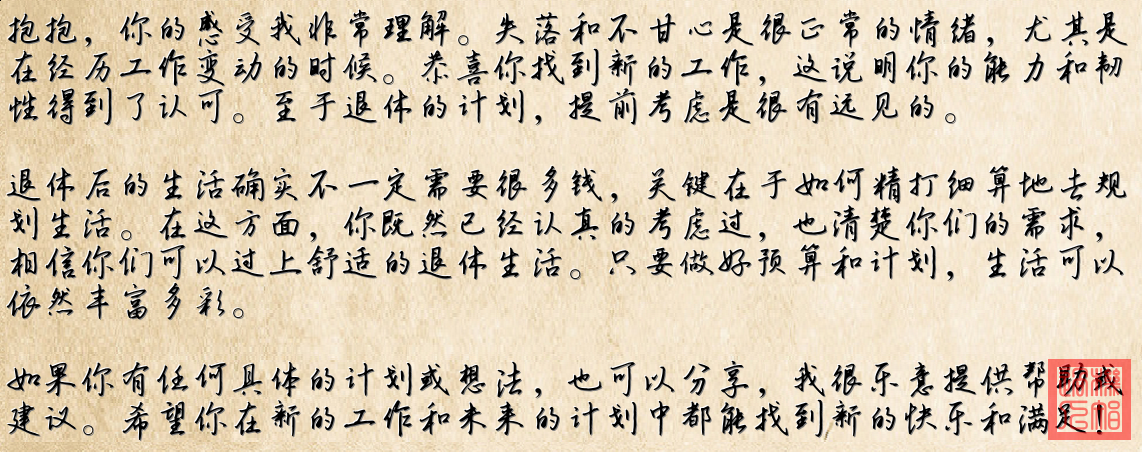 抱抱，你的感受我非常理解。失落和不甘心是很正常的情绪，尤其是
在经历工作变动的时候。恭喜你找到新的工作，这说明你的能力和韧
性得到了认可。至于退休的计划，提前考虑是很有远见的。
退休后的生活确实不一定需要很多钱，关键在于如何精打细算地去规
划生活。在这方面，你既然已经认真的考虑过，也清楚你们的需求，
相信你们可以过上舒适的退休生活。只要做好预算和计划，生活可以
依然丰富多彩。
如果你有任何具体的计划或想法，也可以分享，我很乐意提供帮助或
建议。希望你在新的工作和未来的计划中都能找到新的快乐和满足！